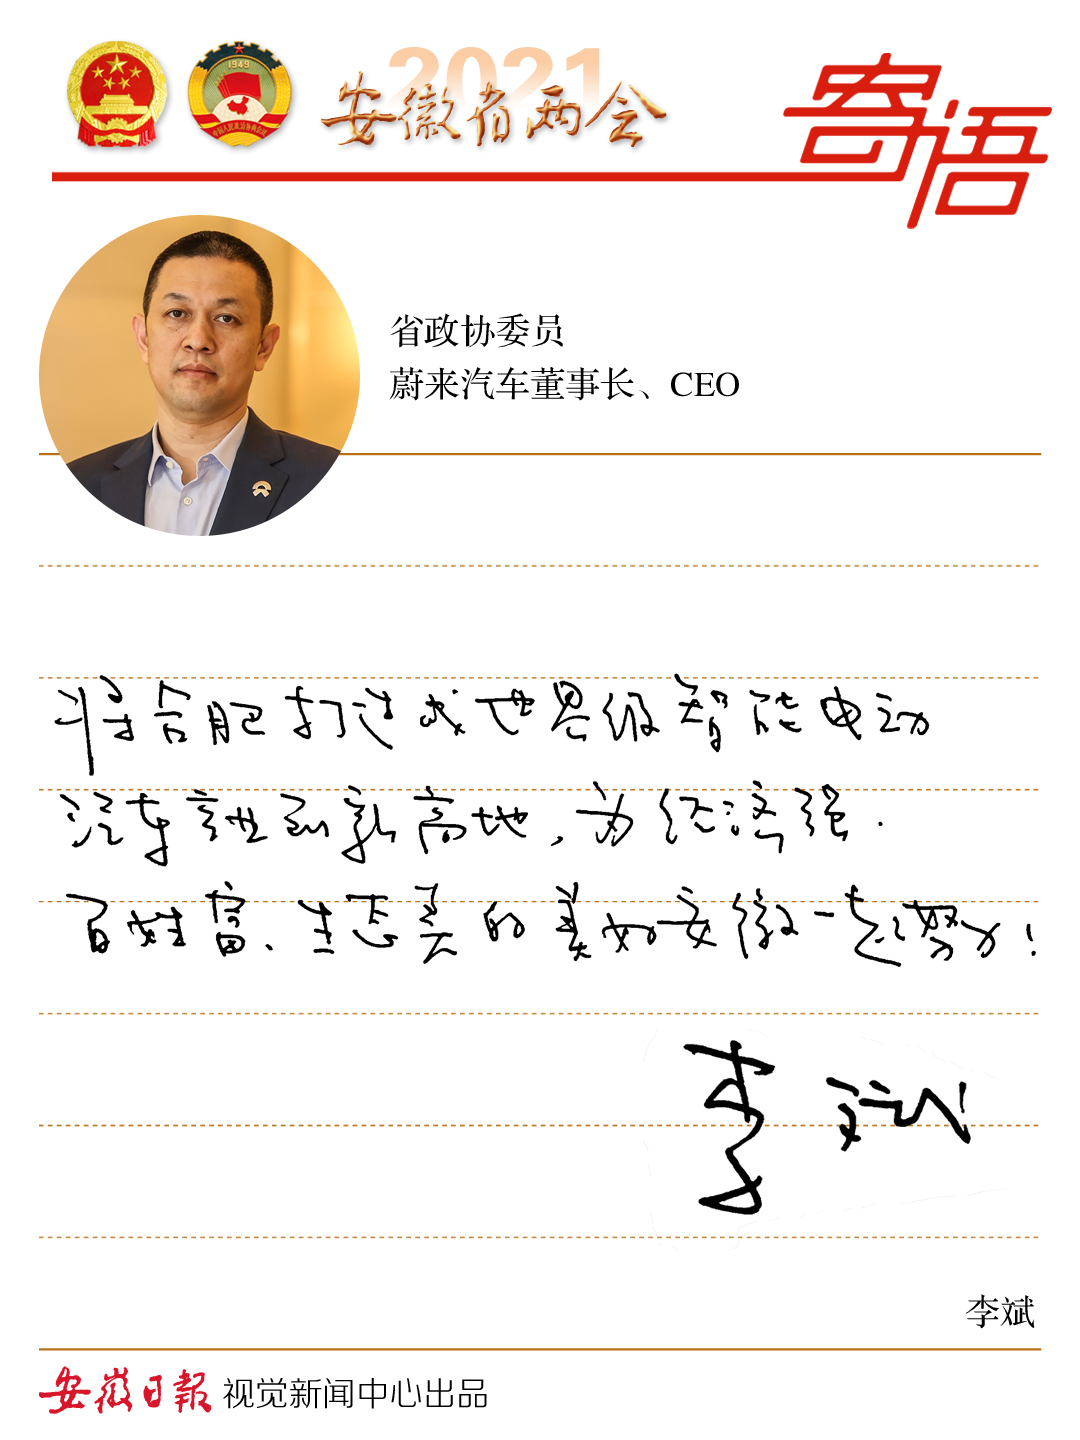 2021
安徽省两会
寄语
1949
中国人民政治协商会议
省政协委员
蔚来汽车董事长、CEO
将合肥打造成世界级智能电动
汽车产业创新高地，为经济强、
百姓富、生态美的美好安徽一起努力！
李斌
李斌
安徽日報 视觉新闻中心出品